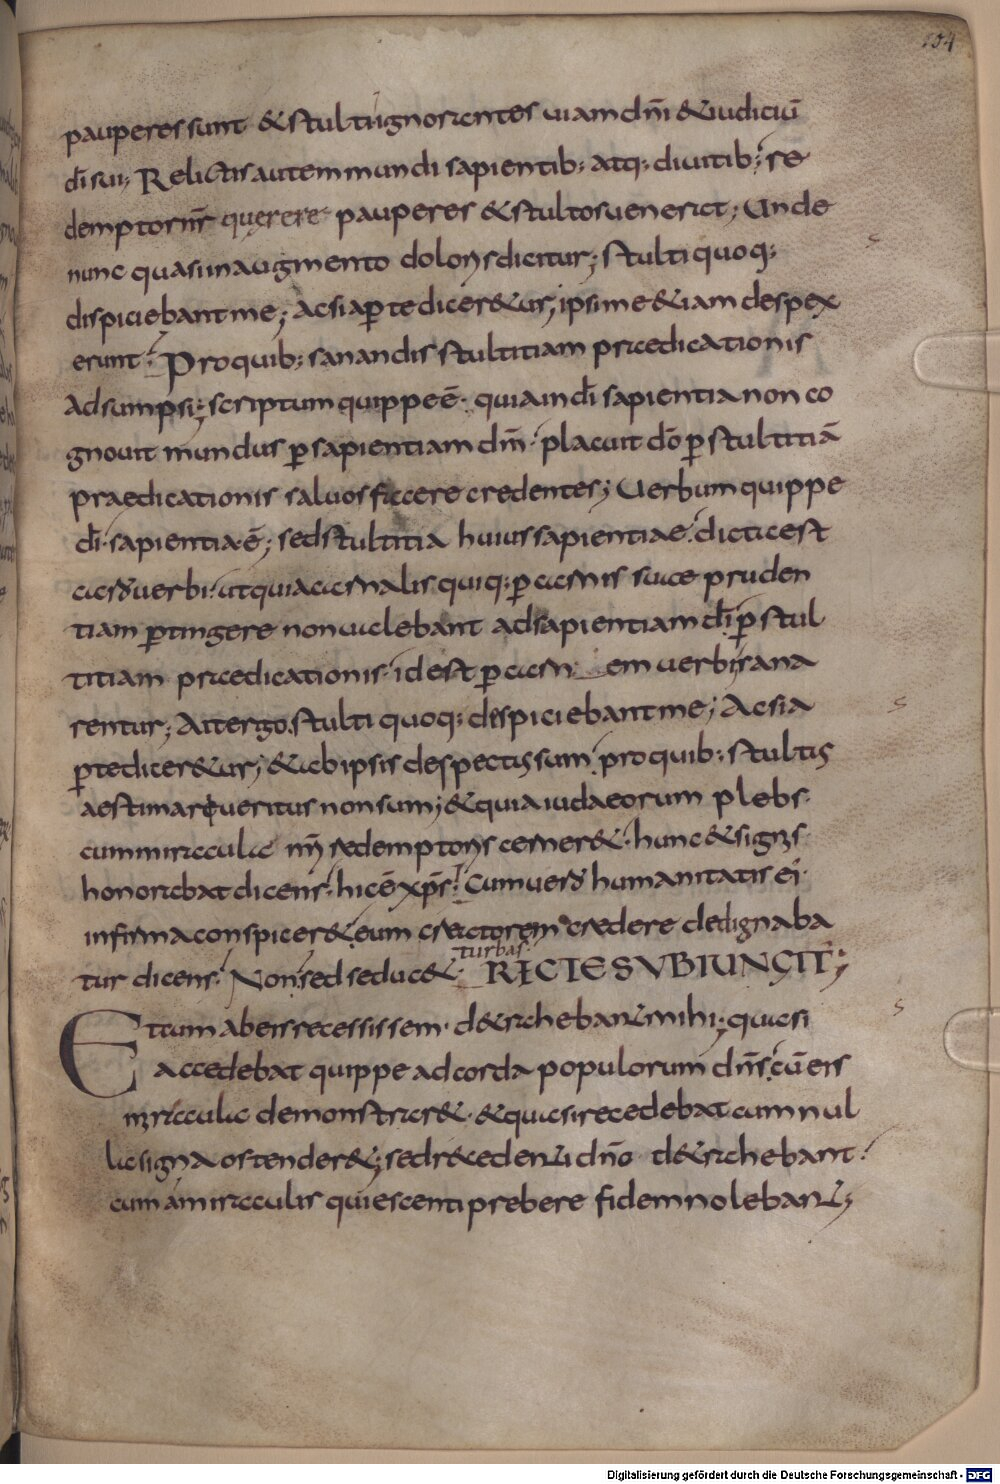 104
pauperes sunt & stulti ignorantes uiam dn̄i & iudiciū
dī sui; Relictis autem mundi sapientib; atq; diuitib; re
demptor nr̄ querere pauperes & stultos uenerat; Unde
nunc quasi in augmento doloris dicitur; stulti quoq;
dispiciebant me; ac si aperte dicer&ur; ipsi me &iam despex
erunt; Pro quib; sanandis stultitiam praedicationis
adsumpsi; scriptum quippe ē. quia in dī sapientia non co
gnouit mundus per sapientiam dm̄. placuit dō per stultitiā
praedicationis saluos facere credentes; Uerbum quippe
dī. sapientia. ē; sed stultitia huius sapientiae. dicta est
caro uerbi. ut quia carnalis quiq; per carnis suae pruden
tiam pertingere non ualebant ad sapientiam dī. per stul
titiam praedicationis. id est per carnem uerbi sana
rentur; Ait ergo. stulti quoq; despiciebant me; Ac si a
perte dicer&ur; & ab ipsis despectus sum. pro quib; stultus
aestimari ueritus non sum; & quia iudaeorum plebs.
cum miracula nr̄i redemptoris cerner&. hunc & signis
honorabat dicens. hic ē xp̄s. Cum uero humanitatis ei.
infirma conspicer&. eum creatorem credere dedignaba
tur dicens. Non. sed seduc&. turbas. RECTE SUBIUNGIT;
Et cum ab eis recessissem. d&rahebant mihi; quasi
accedebat quippe ad corda populorum dn̄s. cū eis
miracula demonstrar&. & quasi recedebat cum nul
la signa ostender&; sed r&cedenti dn̄o d&rahebant.
cum a miraculis quiescenti prebere fidem nolebant;
Digitalisierung gefördert durch die Deutsche Forschungsgemeinschaft - DFG